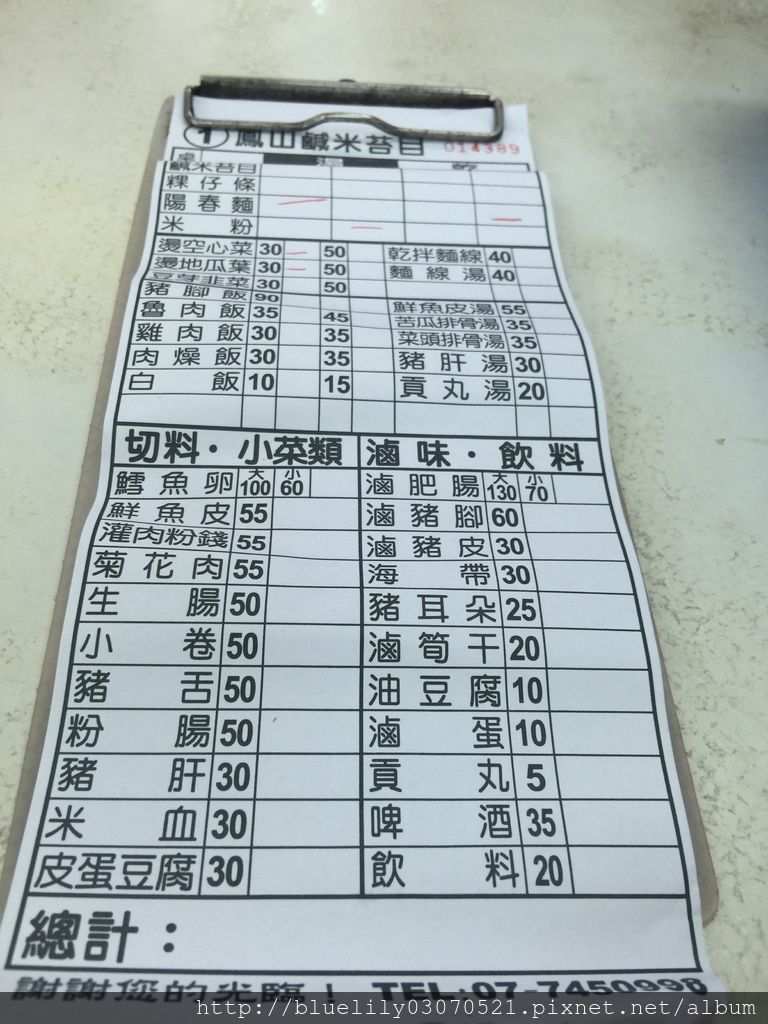 ① 鳳山鹹米苔目 014389
桌 湯 乾
鹹米苔目
粿仔條
陽春麵
米粉
燙空心菜 30 50 乾拌麵線 40
燙地瓜葉 30 50 麵線湯 40
豆芽韭菜 30 50
豬腳飯 90 鮮魚皮湯 55
魯肉飯 35 45 苦瓜排骨湯 35
雞肉飯 30 35 菜頭排骨湯 35
肉燥飯 30 35 豬肝湯 30
白飯 10 15 貢丸湯 20
切料・小菜類 滷味・飲料
鱈魚卵 大100 小60 滷肥腸 大130 小70
鮮魚皮 55 滷豬腳 60
灌肉粉錢 55 滷豬皮 30
菊花肉 55 海帶 30
生腸 50 豬耳朵 25
小卷 50 滷筍干 20
豬舌 50 油豆腐 10
粉腸 50 滷蛋 10
豬肝 30 貢丸 5
米血 30 啤酒 35
皮蛋豆腐 30 飲料 20
總計：
謝謝您的光臨！ TEL:07-7450998
http://bluelily03070521.pixnet.net/album